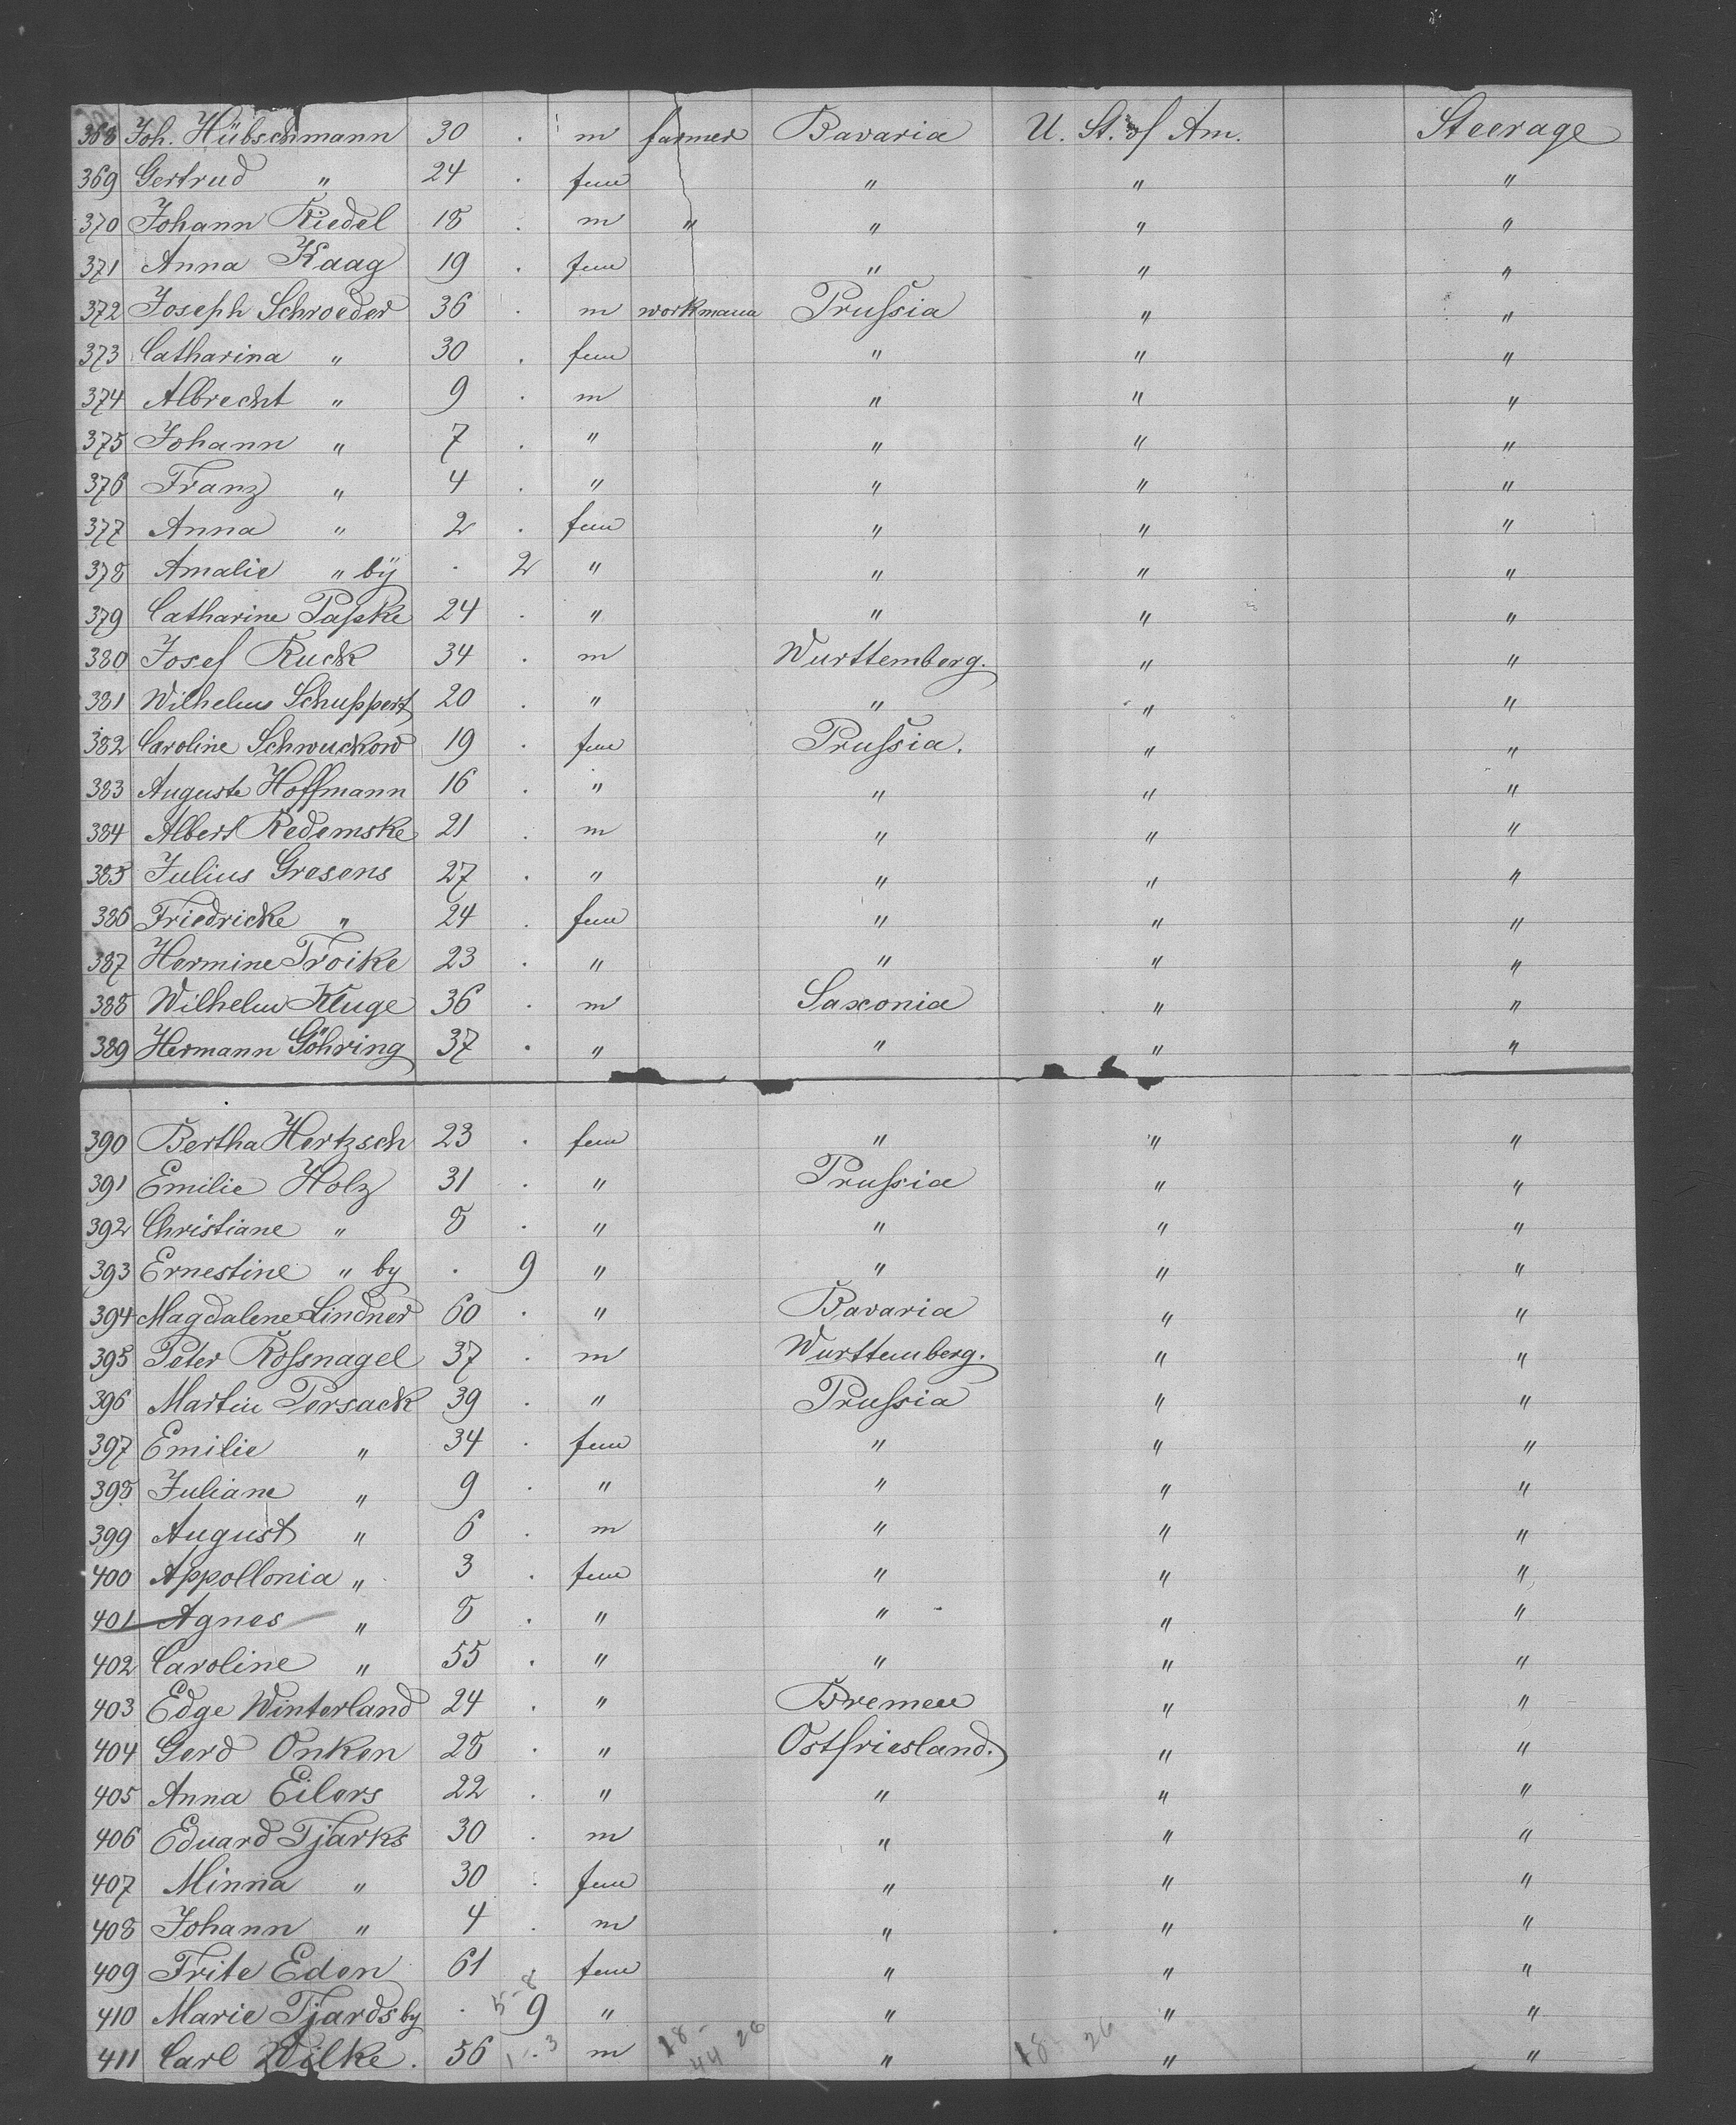 368 Joh. Hübschmann 30 . m farmer Bavaria U. St. of Am. Steerage
369 Gertrud " 24 . fem " " "
370 Johann Riedel 18 . m " " " "
371 Anna Kaag 19 . fem " " "
372 Joseph Schroeder 36 . m workmann Prussia " "
373 Catharina " 30 . fem " " "
374 Albrecht " 9 . m " " "
375 Johann " 7 . " " " "
376 Franz " 4 . " " " "
377 Anna " 2 . fem " " "
378 Amalie " by . 2 " " " "
379 Catharine Paspke 24 . " " " "
380 Josef Ruck 34 . m Wurttemberg. " "
381 Wilhelm Schuppert 20 . " " " "
382 Caroline Schwuckow 19 . fem Prussia. " "
383 Auguste Hoffmann 16 . " " " "
384 Albert Redemske 21 . m " " "
385 Julius Gresens 27 . " " " "
386 Friedricke " 24 . fem " " "
387 Hermine Troike 23 . " " " "
388 Wilhelm Kluge 36 . m Saxonia " "
389 Hermann Göhring 37 . " " " "
390 Bertha Hertzsch 23 . fem " " "
391 Emilie Holz 31 . " Prussia " "
392 Christiane " 8 . " " " "
393 Ernestine " by . 9 " " " "
394 Magdalene Lindner 60 . " Bavaria " "
395 Peter Rossnagel 37 . m Wurttemberg. " "
396 Martin Persack 39 . " Prussia " "
397 Emilie " 34 . fem " " "
398 Juliane " 9 . " " " "
399 August " 6 . m " " "
400 Appollonia " 3 . fem " " "
401 Agnes " 8 . " " " "
402 Caroline " 55 . " " " "
403 Edge Winterland 24 . " Bremen " "
404 Gerd Onken 28 . " Ostfriesland. " "
405 Anna Eilers 22 . " " " "
406 Eduard Tjarks 30 . m " " "
407 Minna " 30 . fem " " "
408 Johann " 4 . m " " "
409 Frite Eden 61 fem " " "
410 Marie Tjards by . 9 " " " "
411 Carl Wilke . 56 . m " " "